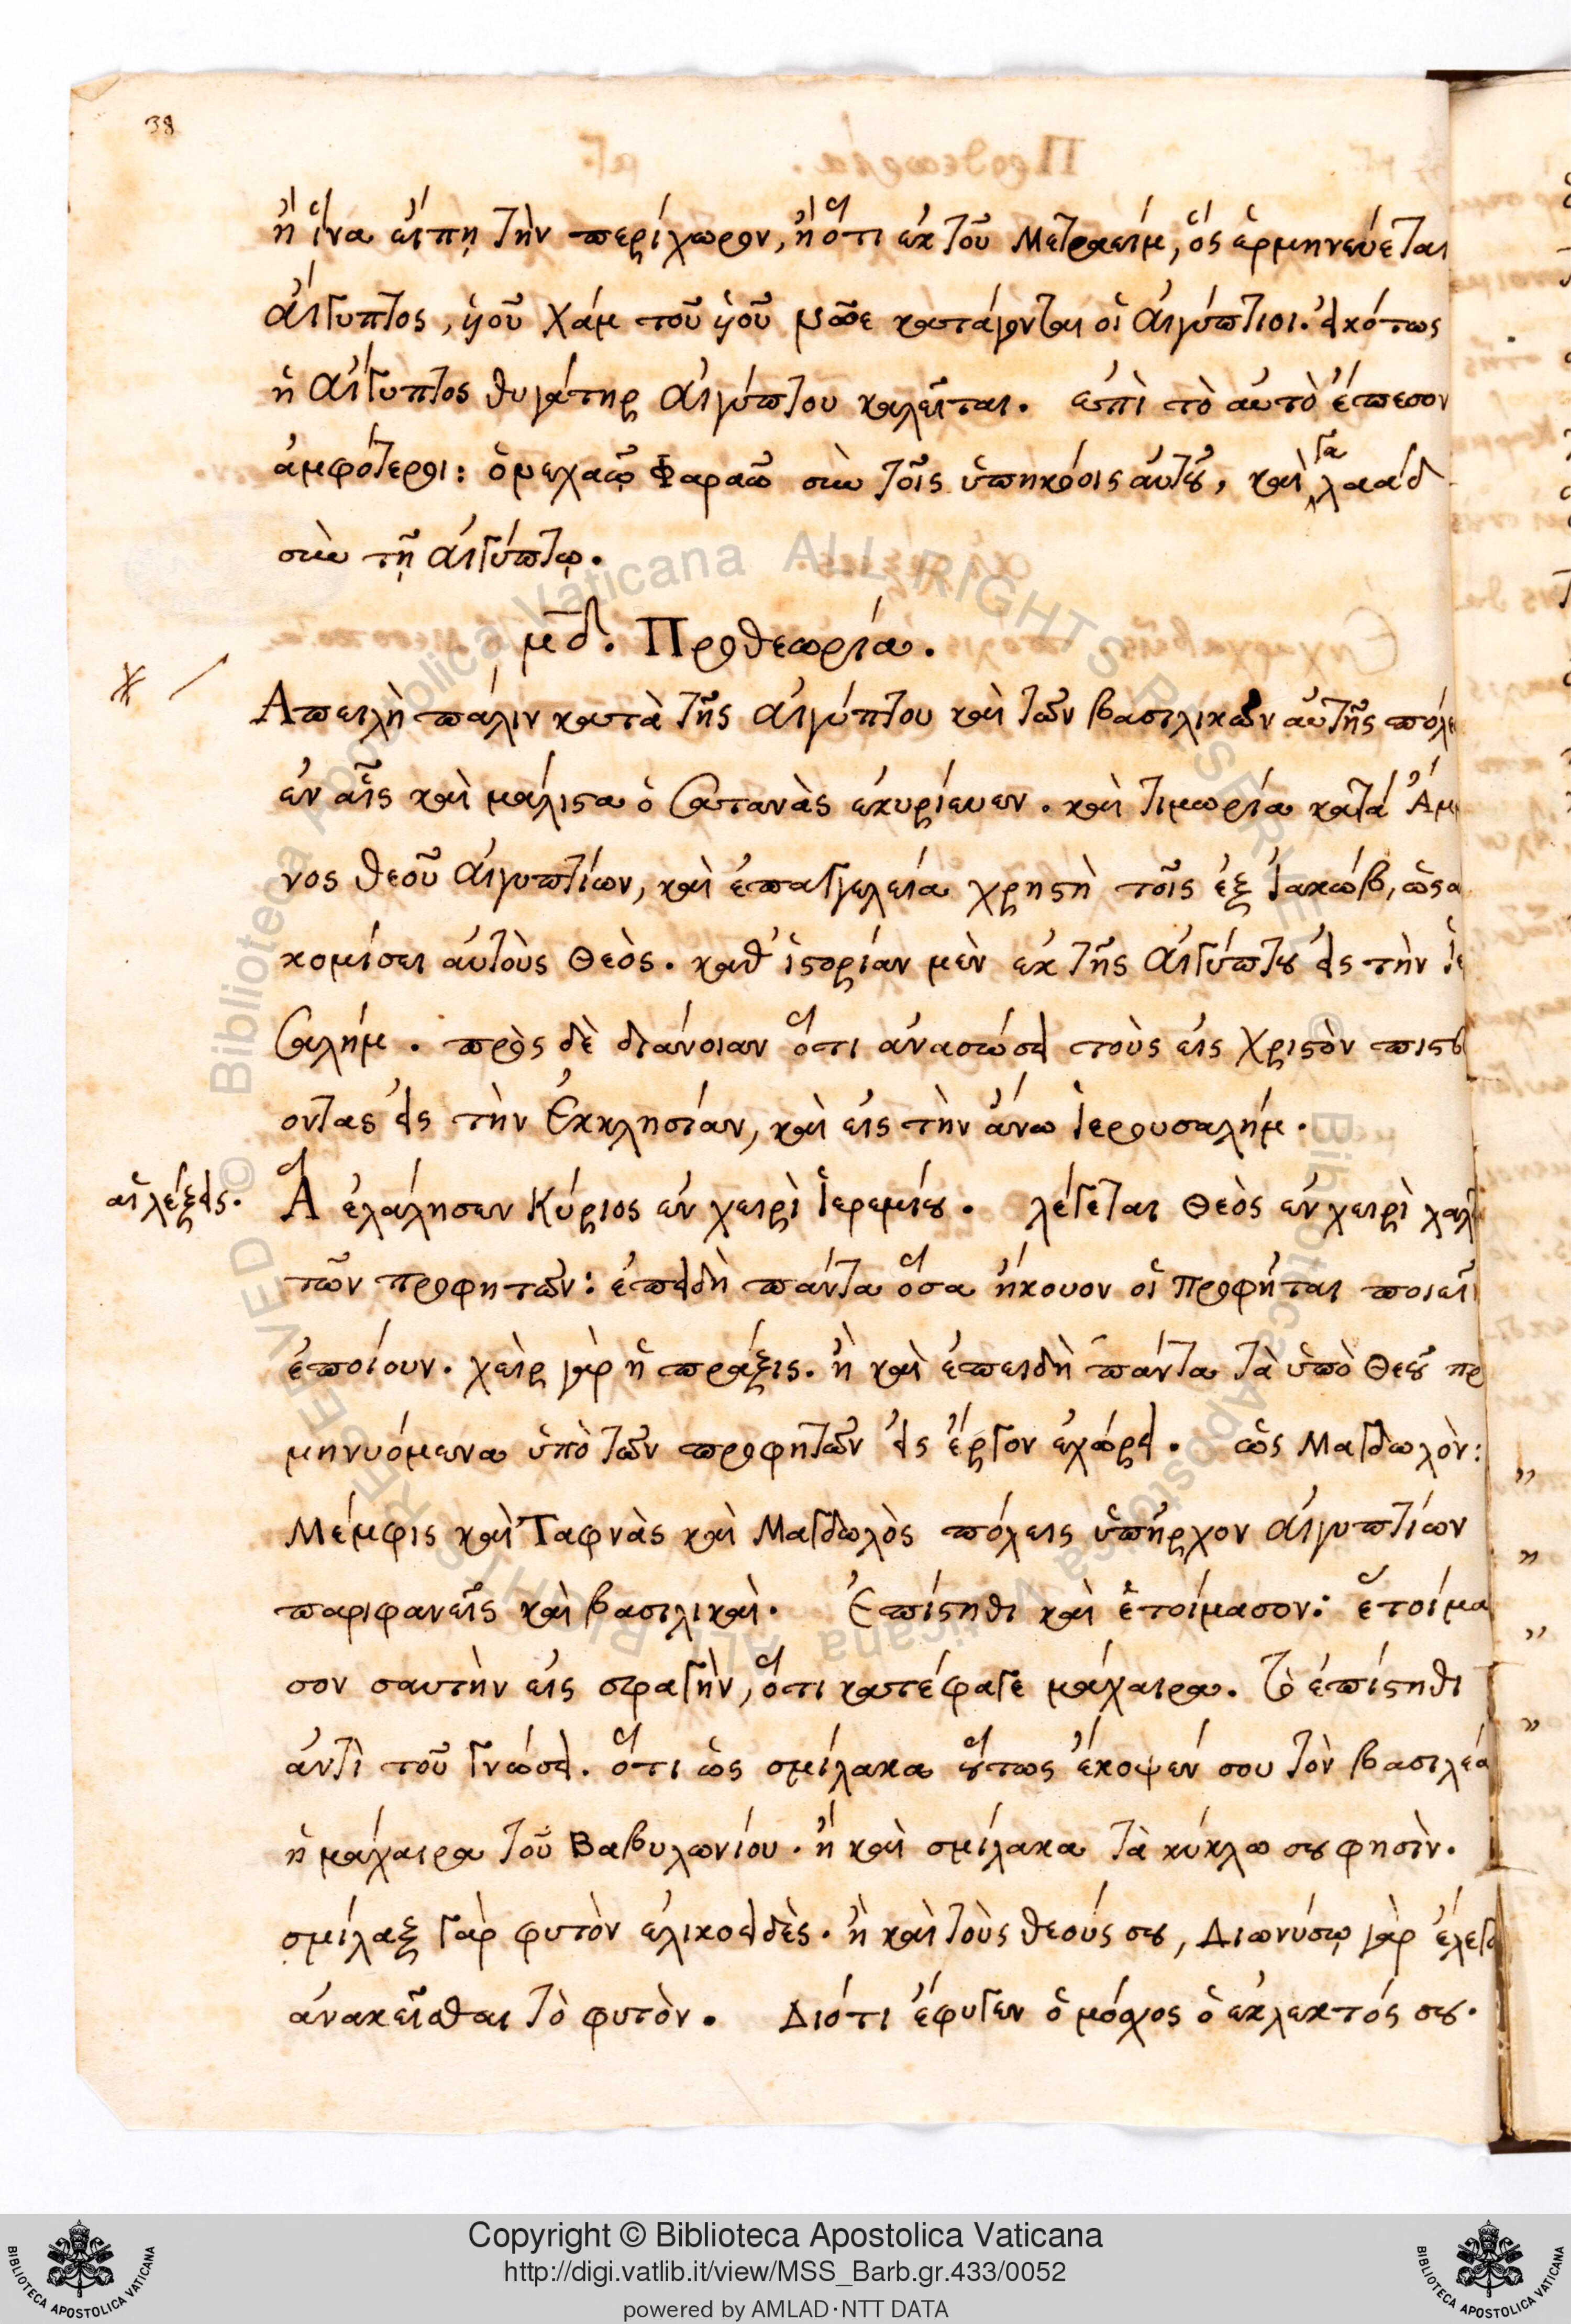 38
ἢ ἵνα εἴπῃ τὴν περίχωρον, ἢ ὅτι ἐκ τοῦ Μετραείμ, ὅς ἑρμηνεύεται
Αἴγυπτος, ὑοῦ Χάμ τοῦ ὑοῦ Νῶε κατάγονται οἱ Αἰγύπτιοι. εἰκότως
ἡ Αἴγυπτος θυγάτηρ Αἰγύπτου καλεῖται. ἐπὶ τὸ αὐτὸ ἔπεσον
ἀμφότεροι: ὁ Φαραῶ σὺν τοῖς ὑπηκόοις αὐτοῦ, καὶ γαλαάδ
σὺν τῇ Αἰγύπτῳ.
μδ. Προθεωρία.
Απειλὴ πάλιν κατὰ τῆς Αἰγύπτου καὶ τῶν βασιλικῶν αὐτῆς πόλε
ἐν αἷς καὶ μάλιστα ὁ Σατανὰς ἐκυρίευεν. καὶ τιμωρία κατά Ἄμ
νος θεοῦ Αἰγυπτίων, καὶ ἐπαγγελεία χρηστὴ τοῖς ἐξ Ἰακώβ, ὡς α
κομίσει αὐτοὺς Θεὸς. καθ' ἱστορίαν μὲν ἐκ τῆς Αἰγύπτου εἰς τὴν Ἱε
σαλήμ. πρὸς δὲ διάνοιαν ὅτι ἀνασώσει τοὺς εἰς Χριστὸν πιστευ
οντας εἰς τὴν Ἐκκλησίαν, καὶ εἰς τὴν ἄνω Ἱερουσαλήμ.
αἱ λέξεις. Ἃ ἐλάλησεν Κύριος ἐν χειρὶ Ἱερεμίου. λέγεται Θεὸς ἐν χειρὶ λαλ
τῶν προφητῶν: ἐπειδὴ πάντα ὅσα ἤκουον οἱ προφῆται ποιεῖ
ἐποίουν. χεὶρ γὰρ ἡ πρᾶξις. ἢ καὶ ἐπειδὴ πάντα τὰ ὑπὸ Θεοῦ πρ
μηνυόμενα ὑπὸ τῶν προφητῶν εἰς ἔργον ἐχώρει. ὡς Μαγδωλὸν:
Μέμφις καὶ Ταφνὰς καὶ Μαγδωλὸς πόλεις ὑπῆρχον Αἰγυπτίων
παριφανεῖς καὶ βασιλικαὶ. Ἐπίστηθι καὶ ἑτοίμασον: ἑτοίμα
σον σαυτὴν εἰς σφαγὴν, ὅτι κατέφαγε μάχαιρα. Τὸ ἐπίστηθι
ἀντὶ τοῦ γνώσει. ὅτι ὡς σμίλακα οὕτως ἔκοψέν σου τὸν βασιλέα
ἡ μάχαιρα τοῦ Βαβυλωνίου. ἢ καὶ σμίλακα τὰ κύκλω σου φησὶν.
σμίλαξ γὰρ φυτὸν ἑλικοειδὲς. ἢ καὶ τοὺς θεούς σου, Διωνύσῳ γὰρ ἐλεγο
ἀνακεῖσθαι τὸ φυτὸν. Διότι ἔφυγεν ὁ μόσχος ὁ ἐκλεκτός σου.
Copyright © Biblioteca Apostolica Vaticana
http://digi.vatlib.it/view/MSS_Barb.gr.433/0052
powered by AMLAD·NTT DATA